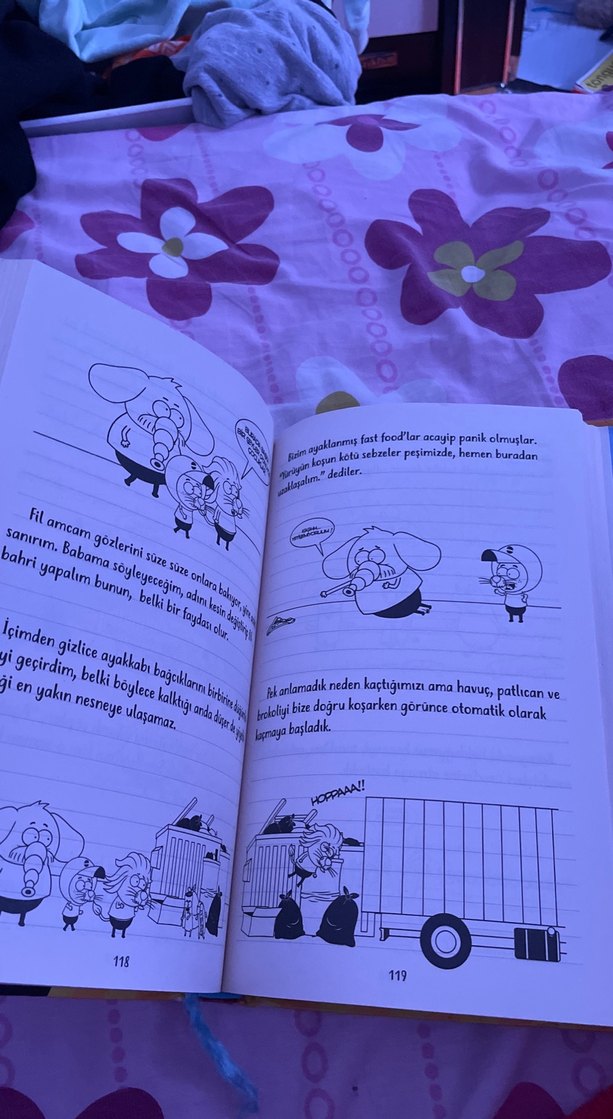 Fil amcam gözlerini süze süze onlara bakıyor, yine
sanırım. Babama söyleyeceğim, adını kesin değiştirip
bahri yapalım bunun, belki bir faydası olur.
İçimden gizlice ayakkabı bağcıklarını birbirine
yi geçirdim, belki böylece kalktığı anda düşer de
ği en yakın nesneye ulaşamaz.
118
Bizim ayaklanmış fast food'lar acayip panik olmuşlar.
"Yürüyün koşun kötü sebzeler peşimizde, hemen buradan
uzaklaşalım." dediler.
Pek anlamadık neden kaçtığımızı ama havuç, patlıcan ve
brokoliyi bize doğru koşarken görünce otomatik olarak
kaçmaya başladık.
HOPPAAA!!
119